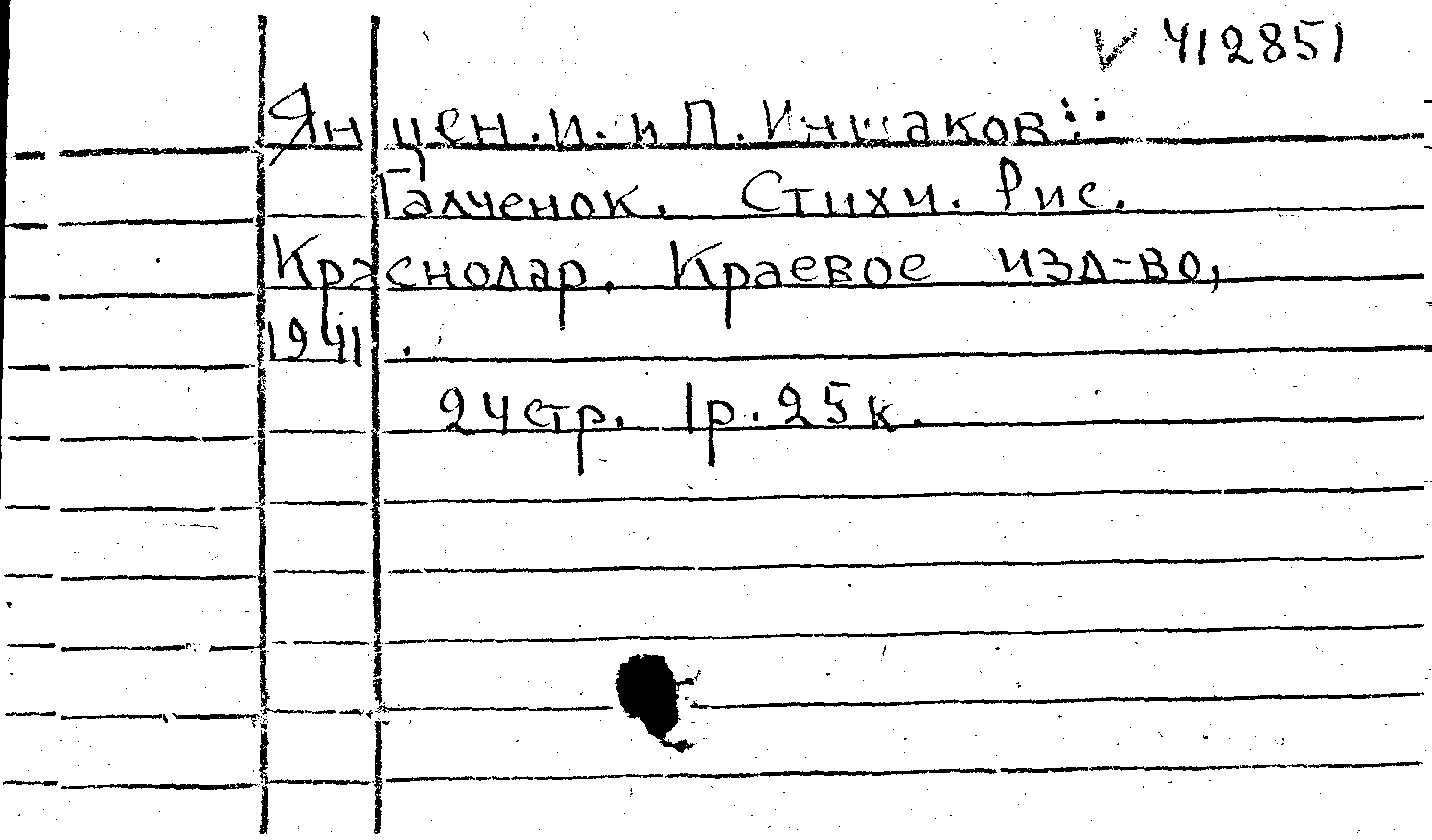 V 412851
Янцен.И. и П. Иншаков:.
Галченок. Стихи. Рис.
Краснодар. Краевое изд-во,
1941.
24 стр. 1р. 25к.